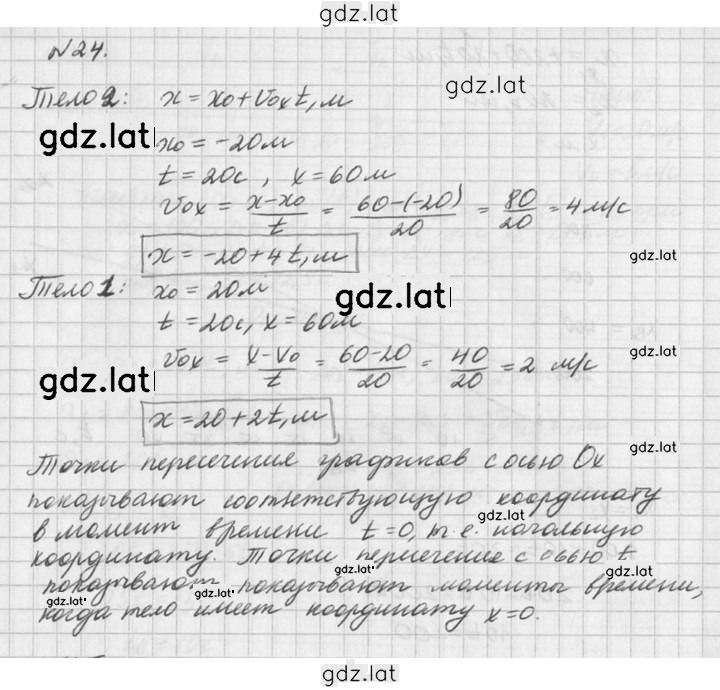 gdz.lat
№24.
Тело 2: x = x₀ + v₀ₓt, м
gdz.lat
gdz.lat
x₀ = -20м
t = 20с, x = 60м
v₀ₓ = x-x₀/t = 60-(-20)/20 = 80/20 = 4 м/с
x = -20+4t, м
gdz.lat
Тело 1: x₀ = 20м
gdz.lat
t = 20с, x = 60м
v₀ₓ = x-v₀/t = 60-20/20 = 40/20 = 2 м/с
gdz.lat
x = 20+2t, м
Точки пересечение графиков с осью Ox
gdz.lat
показывают соответствующую координату
gdz.lat
в момент времени t=0, т.е. начальную
координату. Точки пересечение с осью t
gdz.lat
показывают показывают моменты времени,
gdz.lat
gdz.lat
когда тело имеет координату x=0.
gdz.lat